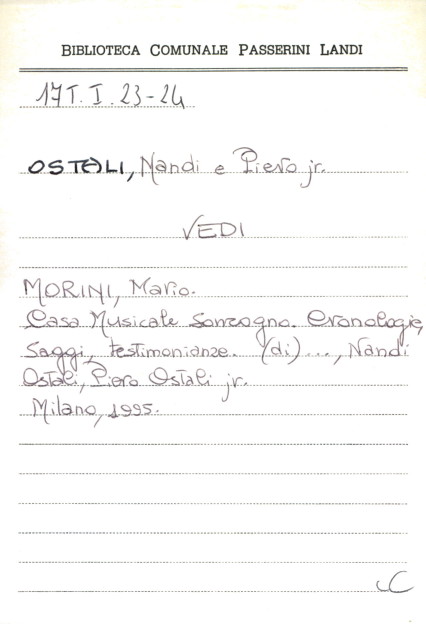 BIBLIOTECA COMUNALE PASSERINI LANDI
17T. I. 23-24
OSTALI, Nandi e Piero jr.
VEDI
MORINI, Mario.
Casa Musicale Sonzogno. Cronologie,
Saggi, testimonianze. (di) ..., Nandi
Ostali, Piero Ostali jr.
Milano, 1995.